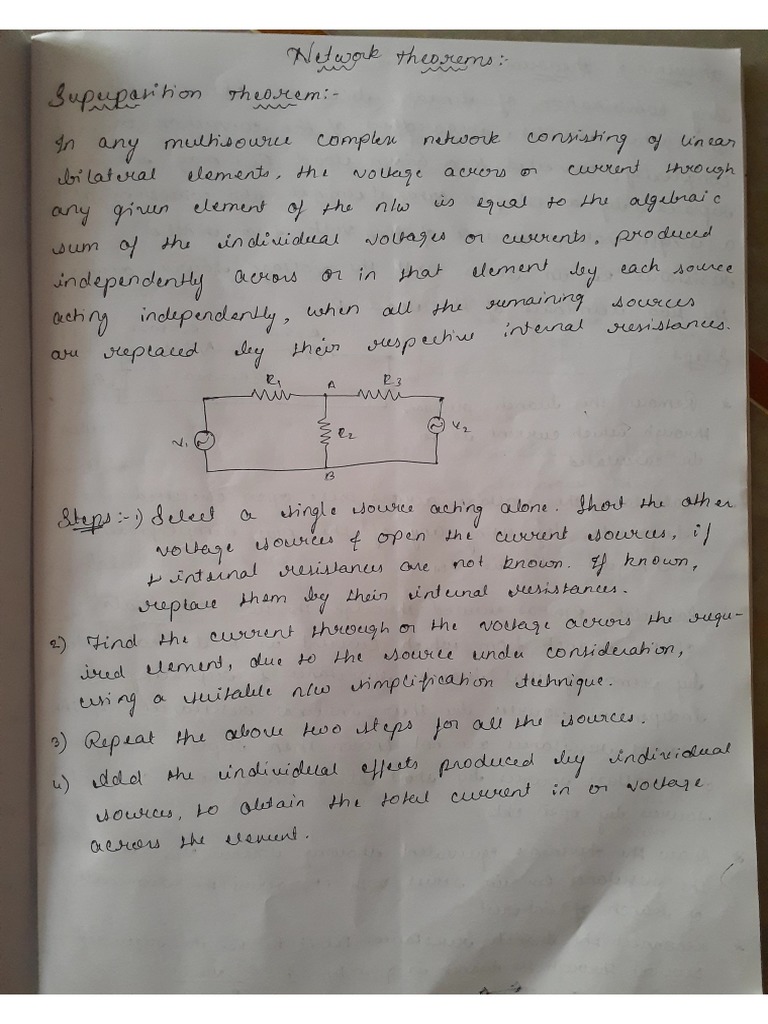 Network theorems:-
Superposition theorem:-
In any multisource complex network consisting of linear
bilateral elements, the voltage across or current through
any given element of the n/w is equal to the algebraic
sum of the individual voltages or currents, produced
independently across or in that element by each source
acting independently, when all the remaining sources
are replaced by their respective internal resistances.
R1 A R3
V1 R2 V2
B
Steps:- 1) Select a single source acting alone. Short the other
voltage sources & open the current sources, if
internal resistances are not known. If known,
replace them by their internal resistances.
2) Find the current through or the voltage across the requ-
ired element, due to the source under consideration,
using a suitable n/w simplification technique.
3) Repeat the above two steps for all the sources.
4) Add the individual effects produced by individual
sources, to obtain the total current in or voltage
across the element.